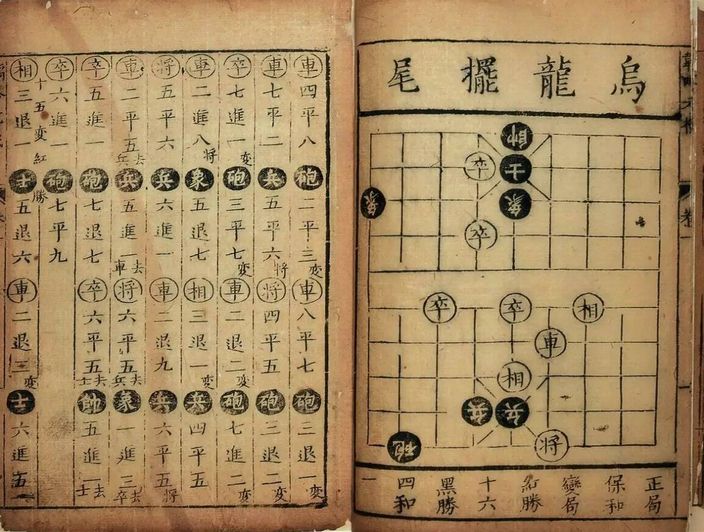 烏龍擺尾
帥
士卒
象象
卒
相卒卒
車
相
兵兵
將砲
正局
保和
變局
紅勝
十六
黑勝
四和
一
卷一
車四平八砲二平三變車八平七砲三退一變
車七平二兵五平六將將四平五砲三退二變
卒七進一變砲三平七變車二退二變砲七進二變
車二進八將象五退七相三退一變兵四平五
將五平六兵六進一車二退九兵六平五將
車二平五去兵兵五進一去車將六平五去兵象一進三去卒
卒五進一砲七退七卒六平五去士帥五進一去士
卒六進一砲七平九
十五變紅勝
相三退一士五退六車二退三變士六進五